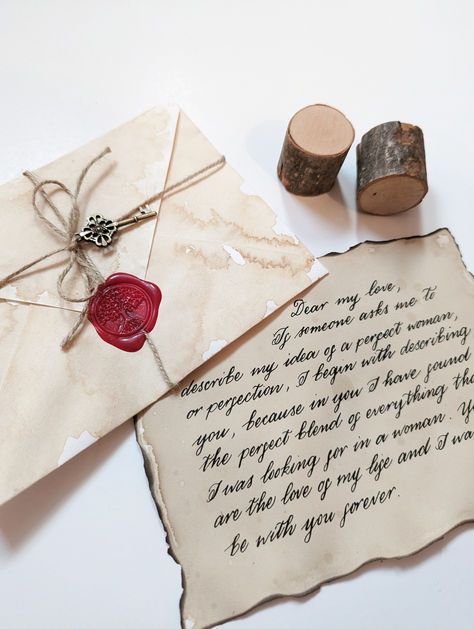 Dear my love,
If someone asks me to
describe my idea of a perfect woman,
or perfection, I begin with describing
you, because in you I have found
the perfect blend of everything
I was looking for in a woman.
are the love of my life and I
be with you forever.